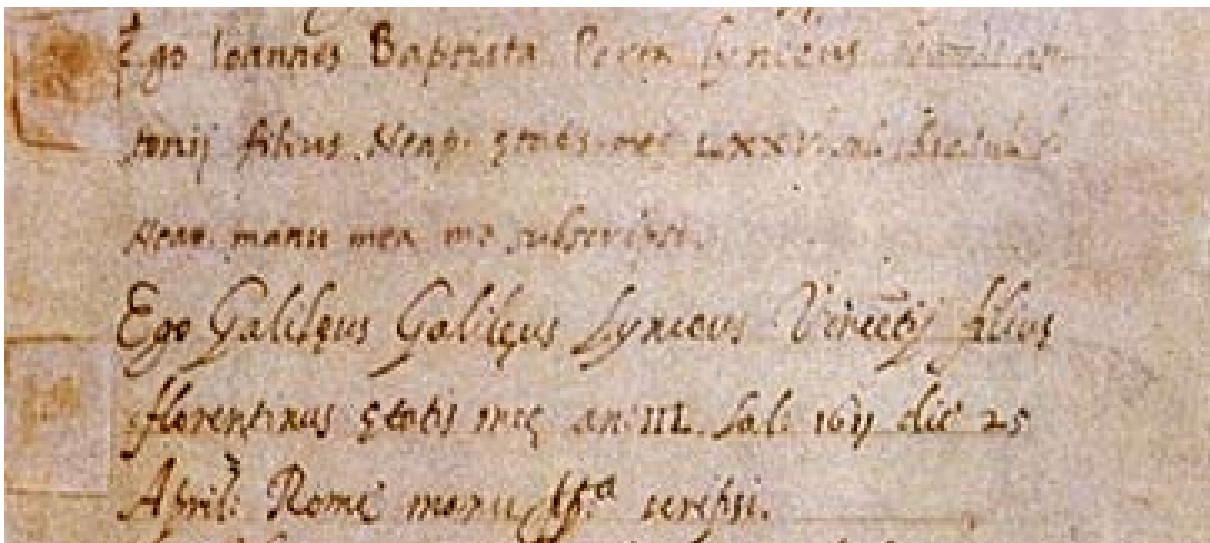 Ego Ioannes Baptista Porta Lynceus
tonij filius Neap. ętatis meę
Neap. manu mea me subscripsi.
Ego Galilęus Galilęus Lynceus Vincētij filius
florentinus ętatis meę an: Sal: 1611 die 25
April: Rome manu scripsi.